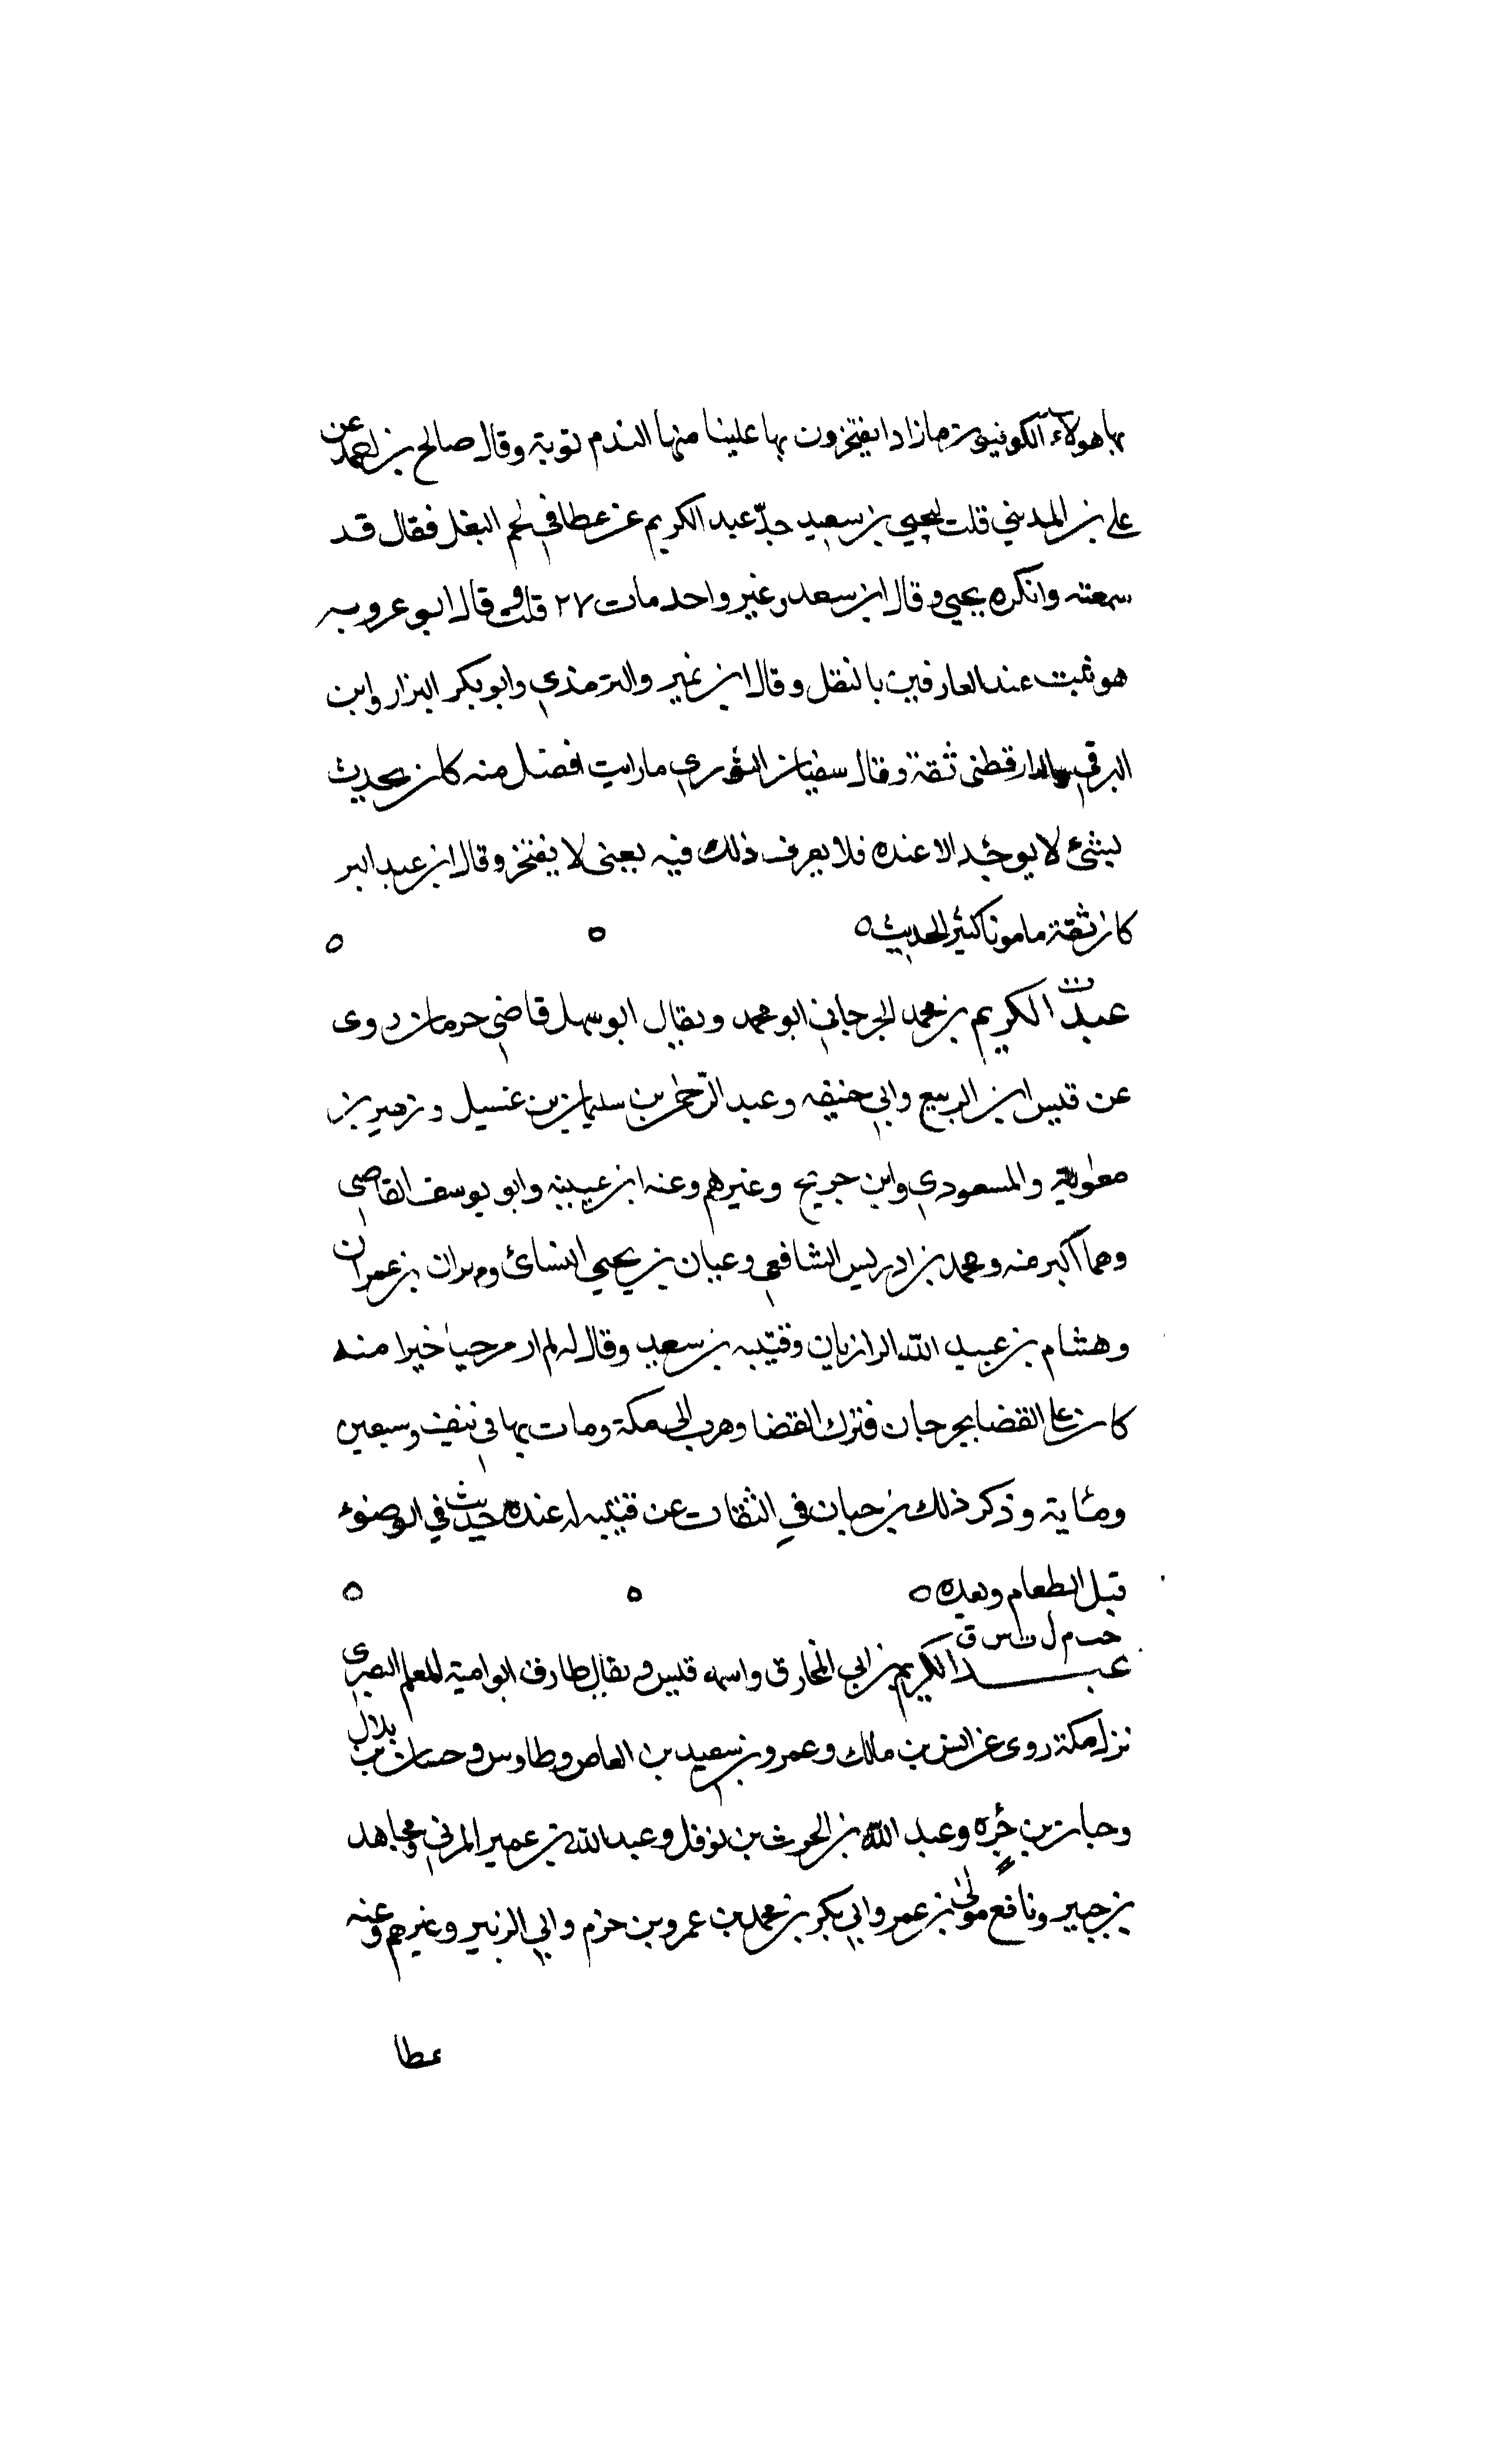 بها هولاء الكوفيون ما زادا يفتخرون بها علينا منها الندم توبة وقال صالح بن احمد عن
علي بن المديني قلت ليحيي بن سعيد حدّ عبد الكريم عن عطا في لحم البغل فقال قد
سمعته وانكره يحيي وقال ابن سعد وغير واحد مات ٢٧ قلت وقال ابو عروبه
هو ثبت عند العارفين بالنقل وقال ابن نمير والترمذي وابو بكر البزار وابن
البرقي والدارقطني ثقة وقال سفيان الثوري ما رايت افضل منه كان يحديث
بشئ لا يوجد الا عنده فلا يعرف ذلك فيه يعنى لا يفتخر وقال ابن عبد البر
كان ثقة مامونا كثير الحديث ه ه ه
ت
عبد الكريم بن محمد الجرجاني ابو محمد ويقال ابو سهل قاضي جرجان روى
عن قيس ابن الربيع وابي حنيفه وعبد الرّحمن بن سليمان بن غسيل وزهير بن
معوية والمسعودي وابن جريج وغيرهم وعنه ابن عيينه وابو يوسف القاضي
وهما اكبر منه ومحمد بن ادريس الشافعي وعبان بن يحيي النسائ ومهران بن عمران
وهشام بن عبيد الله الرازيان وقتيبه بن سعيد وقال له لم ار مرجيا خيرا منه
كان علي القضا بجرجان فترك القضا وهرب الى مكة ومات بها في نيف وسبعين
ومئاية وذكر ذلك بن حبان في الثقات عن قتيبه له عنده حديث في الوضوء
قبل الطعام وبعده ه ه ه
خت م ل ت س ق
عبد الكريم بن ابي المخارق واسمه قيس ويقال طارق ابو امية المعلم البصري
نزل مكة روى عن انس بن مالك وعمرو بن سعيد بن العاص وطاوس وحسان بن بلال
وحبان بن جزء وعبد اللّه بن الحرث بن نوفل وعبد الله بن عمير المدني ومجاهد
بن جبير ونافع مولى بن عمر وابي بكر بن محمد بن عمرو بن حزم وابي الزبير وغيرهم وعنه
عطا